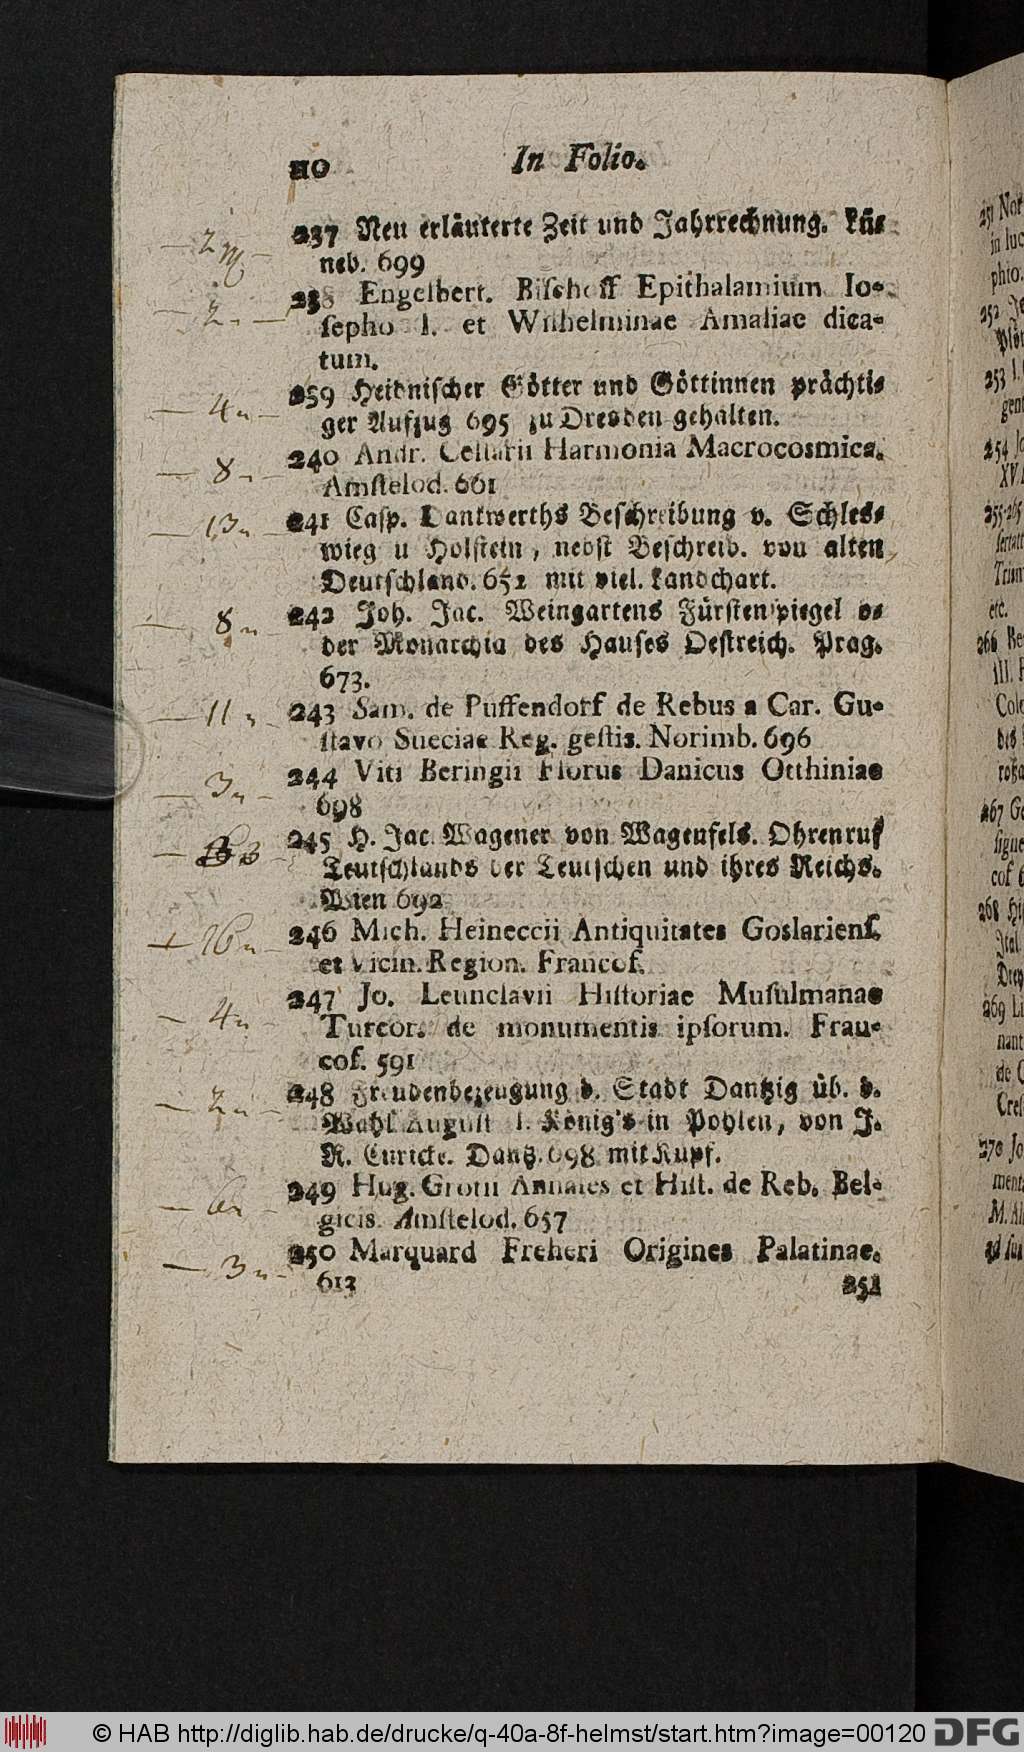 110 In Folio.
237 Neu erläuterte Zeit und Jahrrechnung. Lü-
neb. 699
238 Engelbert. Bischoff Epithalamium Io-
sepho I. et Wilhelminae Amaliae dica-
tum.
239 Heidnischer Götter und Göttinnen prächti-
ger Aufzug 695 zu Dresden gehalten.
240 Andr. Cellarii Harmonia Macrocosmica.
Amſtelod. 661
241 Casp. Dankwerths Beschreibung v. Schles-
wieg u Holstein, nebst Beschreib. von alten
Deutschland. 652 mit viel. Landchart.
242 Joh. Jac. Weingartens Fürstenspiegel o-
der Monarchia des Hauses Oestreich. Prag.
673.
243 Sam. de Puffendorf de Rebus a Car. Gu-
ſtavo Sueciae Reg. geſtis. Norimb. 696
244 Viti Beringii Florus Danicus Otthiniae
698
245 H. Jac. Wagener von Wagenfels. Ohrenruf
Teutschlands der Teutschen und ihres Reichs.
Wien 692
246 Mich. Heineccii Antiquitates Goslarienſ.
et vicin. Region. Francof.
247 Jo. Leunclavii Hiſtoriae Muſulmanae
Turcor. de monumentis ipſorum. Fran-
cof. 591
248 Freudenbezeugung d. Stadt Dantzig üb. d.
Wahl August I. König's in Pohlen, von J.
R. Curicke. Dantz. 698 mit Kupf.
249 Hug. Grotii Annales et Hiſt. de Reb. Bel-
gicis. Amſtelod. 657
250 Marquard Freheri Origines Palatinae.
613 251
— 2
— 2 —
— 4 —
— 8 —
— 13 —
— 8 —
— 11 —
— 3 —
— 3 —
+ 16 —
— 4 —
— 2 —
— 6 —
— 3 —
© HAB http://diglib.hab.de/drucke/q-40a-8f-helmst/start.htm?image=00120 DFG